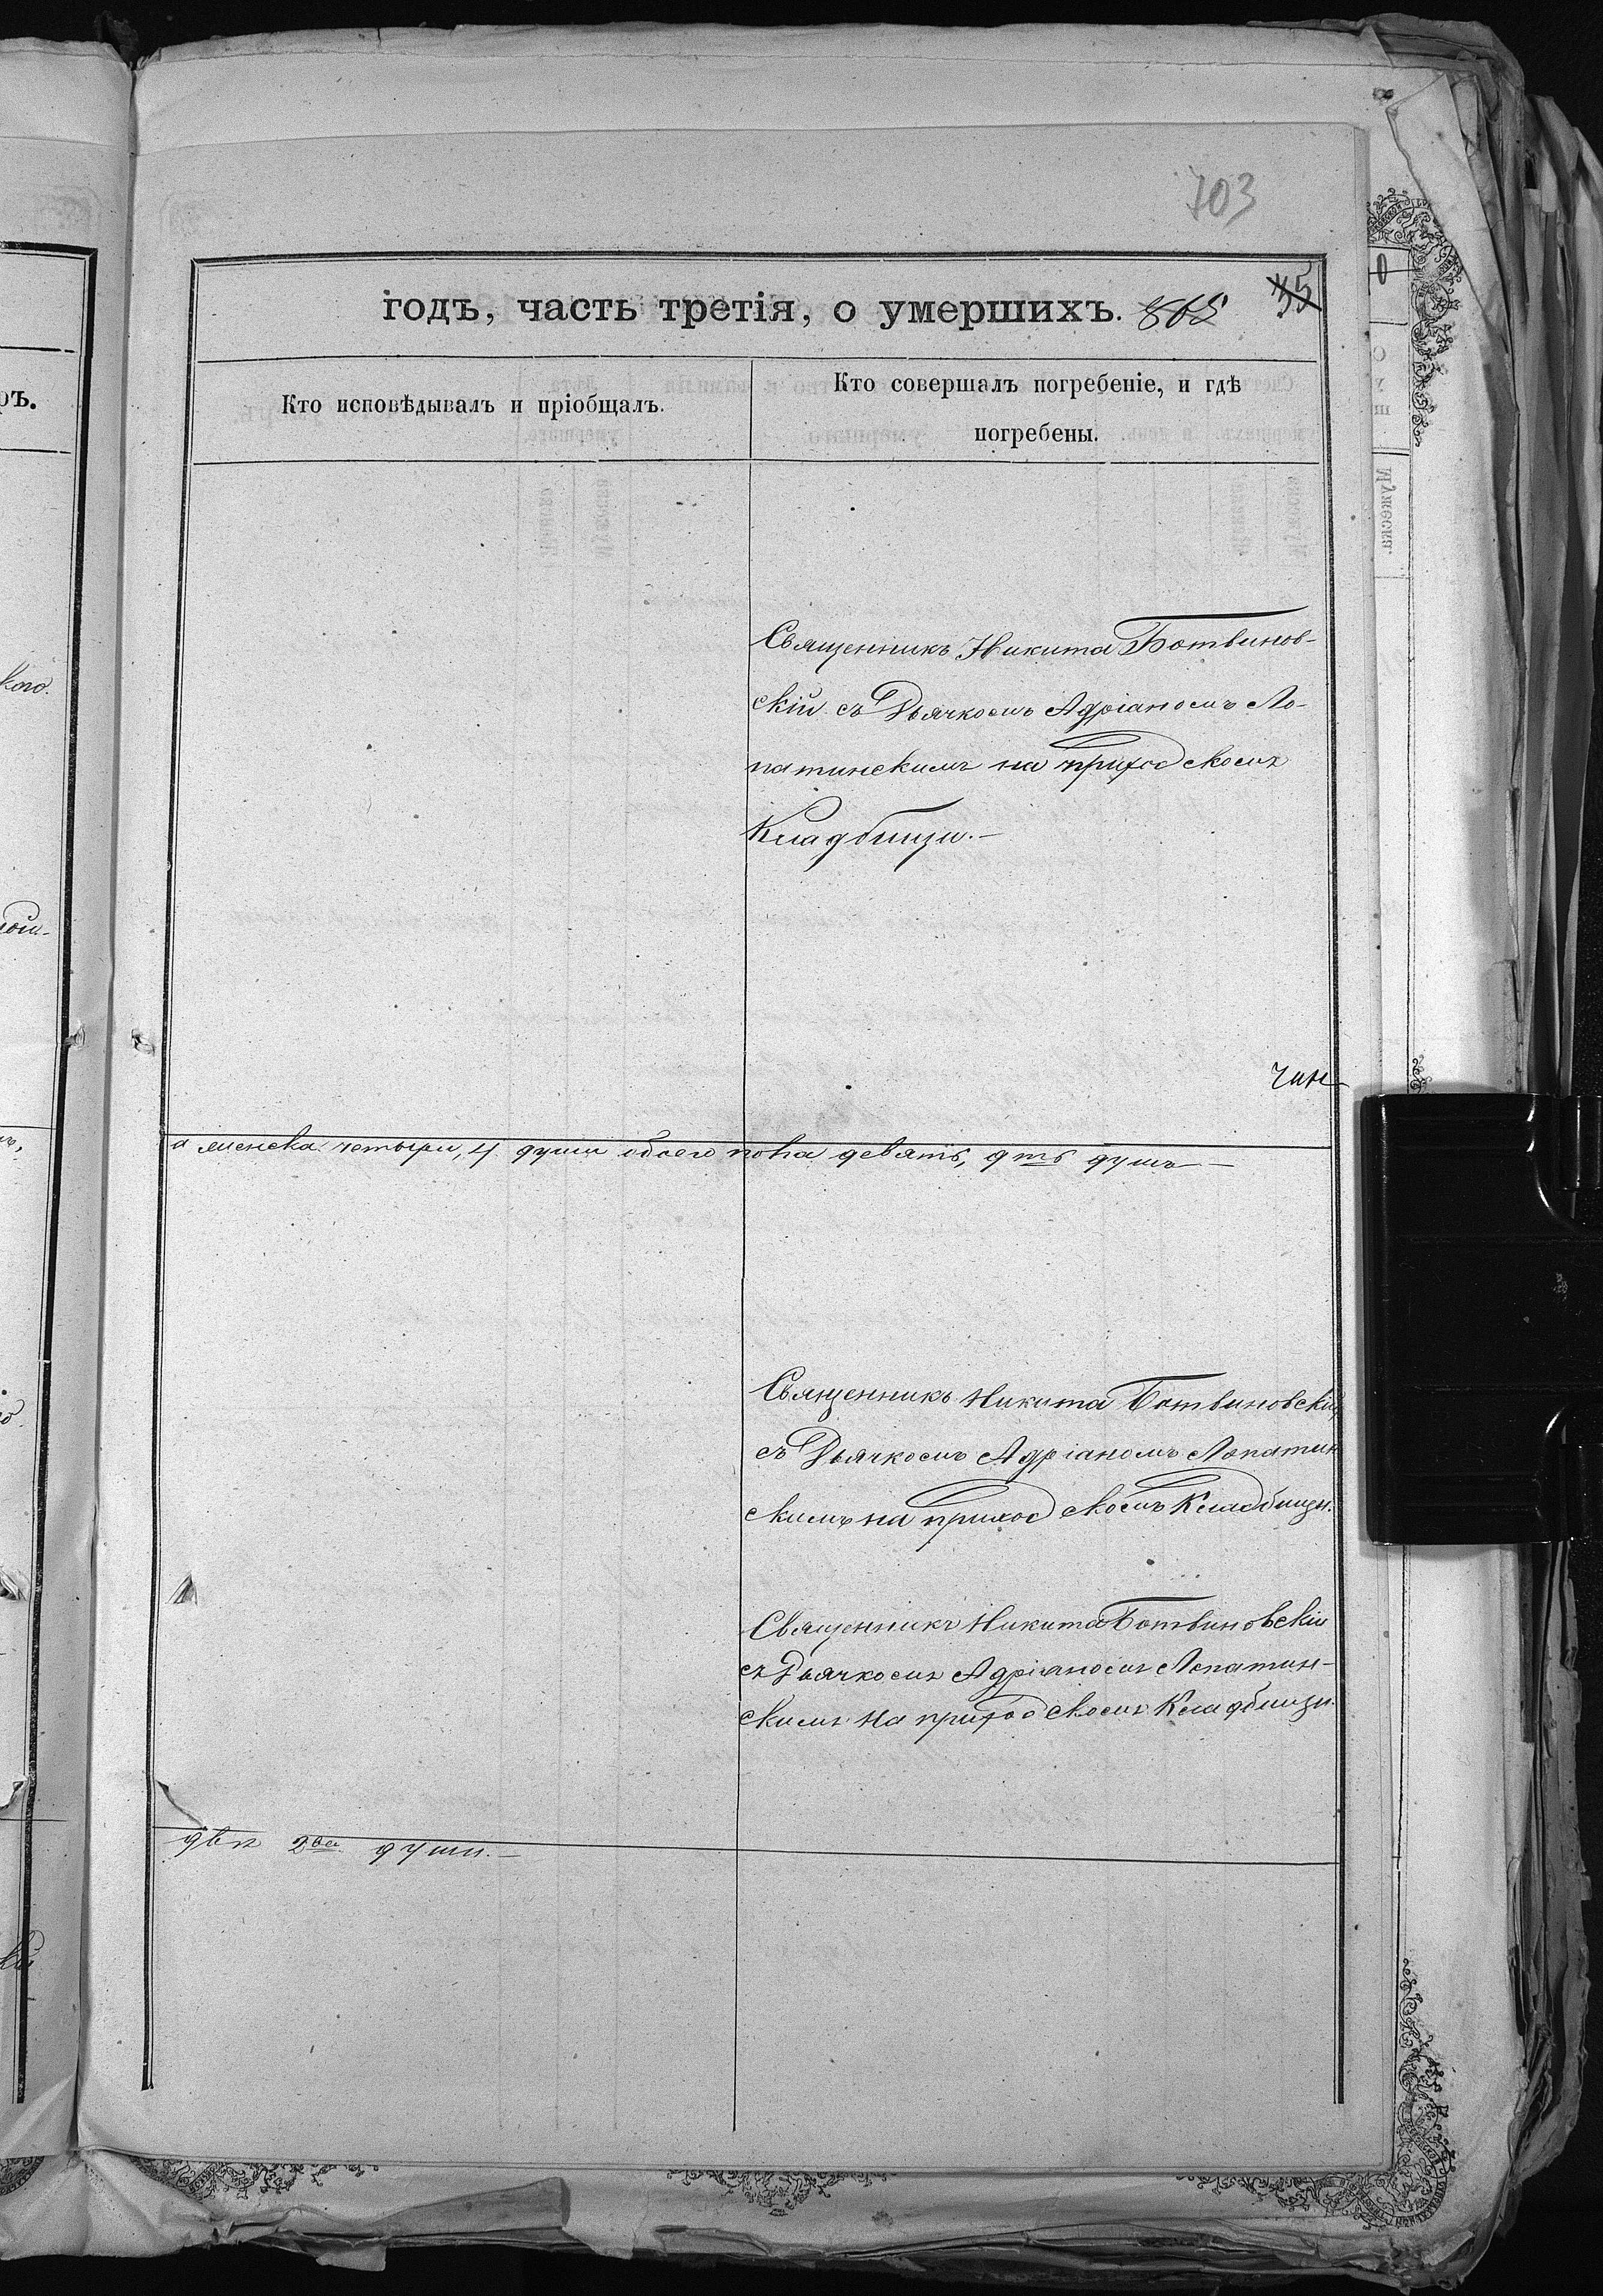 703
годъ, часть третія, о умершихъ. 865 35
Кто исповѣдывалъ и пріобщалъ.
Кто совершалъ погребеніе, и гдѣ
погребены.
Священникъ Никита Ботвинов-
скій съ Дьячкомъ Адріаномъ Ло-
патинскимъ на приходскомъ
Кладбищи.—
а женска четыри, 4 души обоего пола девять, 9ть душъ—
Священникъ Никита Ботвиновскій
съ Дьячкомъ Адріаномъ Лопатин
скимъ на приходскомъ Кладбищи.
Священникъ Никита Ботвиновскій
съ Дьячкомъ Адріаномъ Лопатин-
скимъ на приходскомъ Кладбищи.
двѣ 2ва души.—
ръ.
кого.
Мужеска.